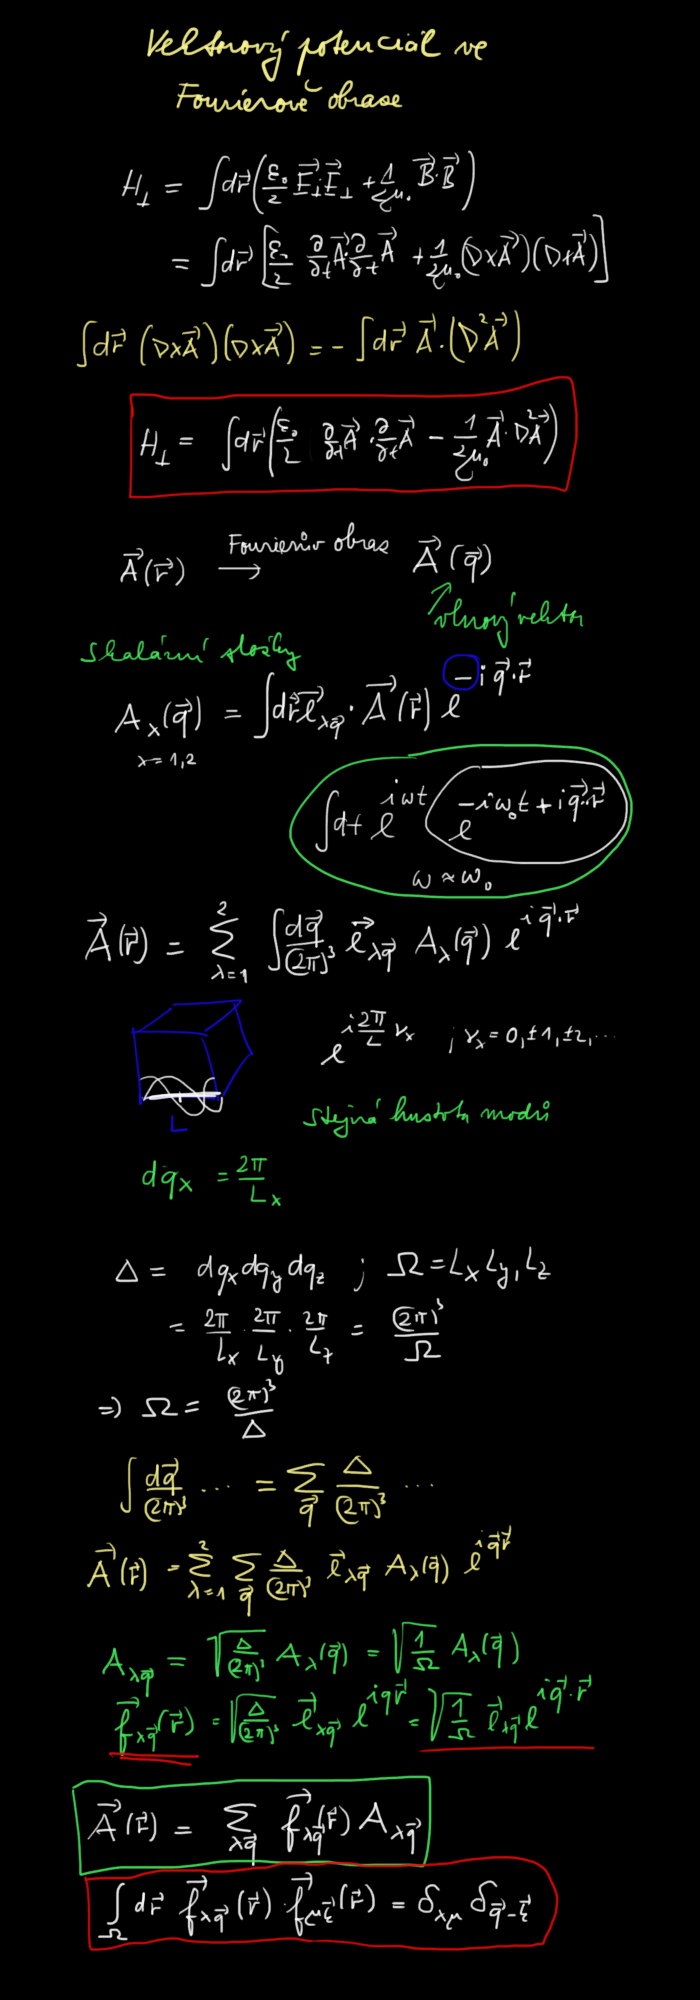 Vektorový potenciál ve
Fourierově obraze
H⊥ = ∫dr⃗ (ε₀/2 E⃗⊥·E⃗⊥ + 1/2μ₀ B⃗·B⃗)
= ∫dr⃗ [ε₀/2 ∂/∂t A⃗·∂/∂t A⃗ + 1/2μ₀ (∇×A⃗)(∇×A⃗)]
∫dr⃗ (∇×A⃗)(∇×A⃗) = -∫dr⃗ A⃗·(∇²A⃗)
H⊥ = ∫dr⃗ (ε₀/2 ∂/∂t A⃗ · ∂/∂t A⃗ - 1/2μ₀ A⃗·∇²A⃗)
A⃗(r⃗) → Fourierův obraz A⃗(q⃗)
↑ vlnový vektor
skalární složky
A_λ(q⃗) = ∫dr⃗ e⃗_λq⃗ · A⃗(r⃗) e^{-i q⃗·r⃗}
λ=1,2
∫dt e^{iωt} (e^{-iω₀t + i q⃗·r⃗})
ω ≈ ω₀
A⃗(r⃗) = ∑_{λ=1}^{2} ∫dq⃗/(2π)³ e⃗_λq⃗ A_λ(q⃗) e^{i q⃗·r⃗}
e^{i 2π/L νₓ} ; νₓ = 0, ±1, ±2, ...
L
stejná hustota modů
dqₓ = 2π/Lₓ
Δ = dqₓ dq_y dq_z ; Ω = Lₓ L_y, L_z
= 2π/Lₓ · 2π/L_y · 2π/L_z = (2π)³/Ω
⇒ Ω = (2π)³/Δ
∫dq⃗/(2π)³ ... = ∑_q⃗ Δ/(2π)³ ...
A⃗(r⃗) = ∑_{λ=1}^{2} ∑_q⃗ Δ/(2π)³ e⃗_λq⃗ A_λ(q⃗) e^{i q⃗ r⃗}
A_λq⃗ = √(Δ/(2π)³) A_λ(q⃗) = √(1/Ω) A_λ(q⃗)
f⃗_λq⃗(r⃗) = √(Δ/(2π)³) e⃗_λq⃗ e^{i q⃗ r⃗} = √(1/Ω) e⃗_λq⃗ e^{i q⃗·r⃗}
A⃗(r⃗) = ∑_λq⃗ f⃗_λq⃗(r⃗) A_λq⃗
∫_Ω dr⃗ f⃗_λq⃗(r⃗) · f⃗_μξ⃗(r⃗) = δ_λμ δ_q⃗-ξ⃗